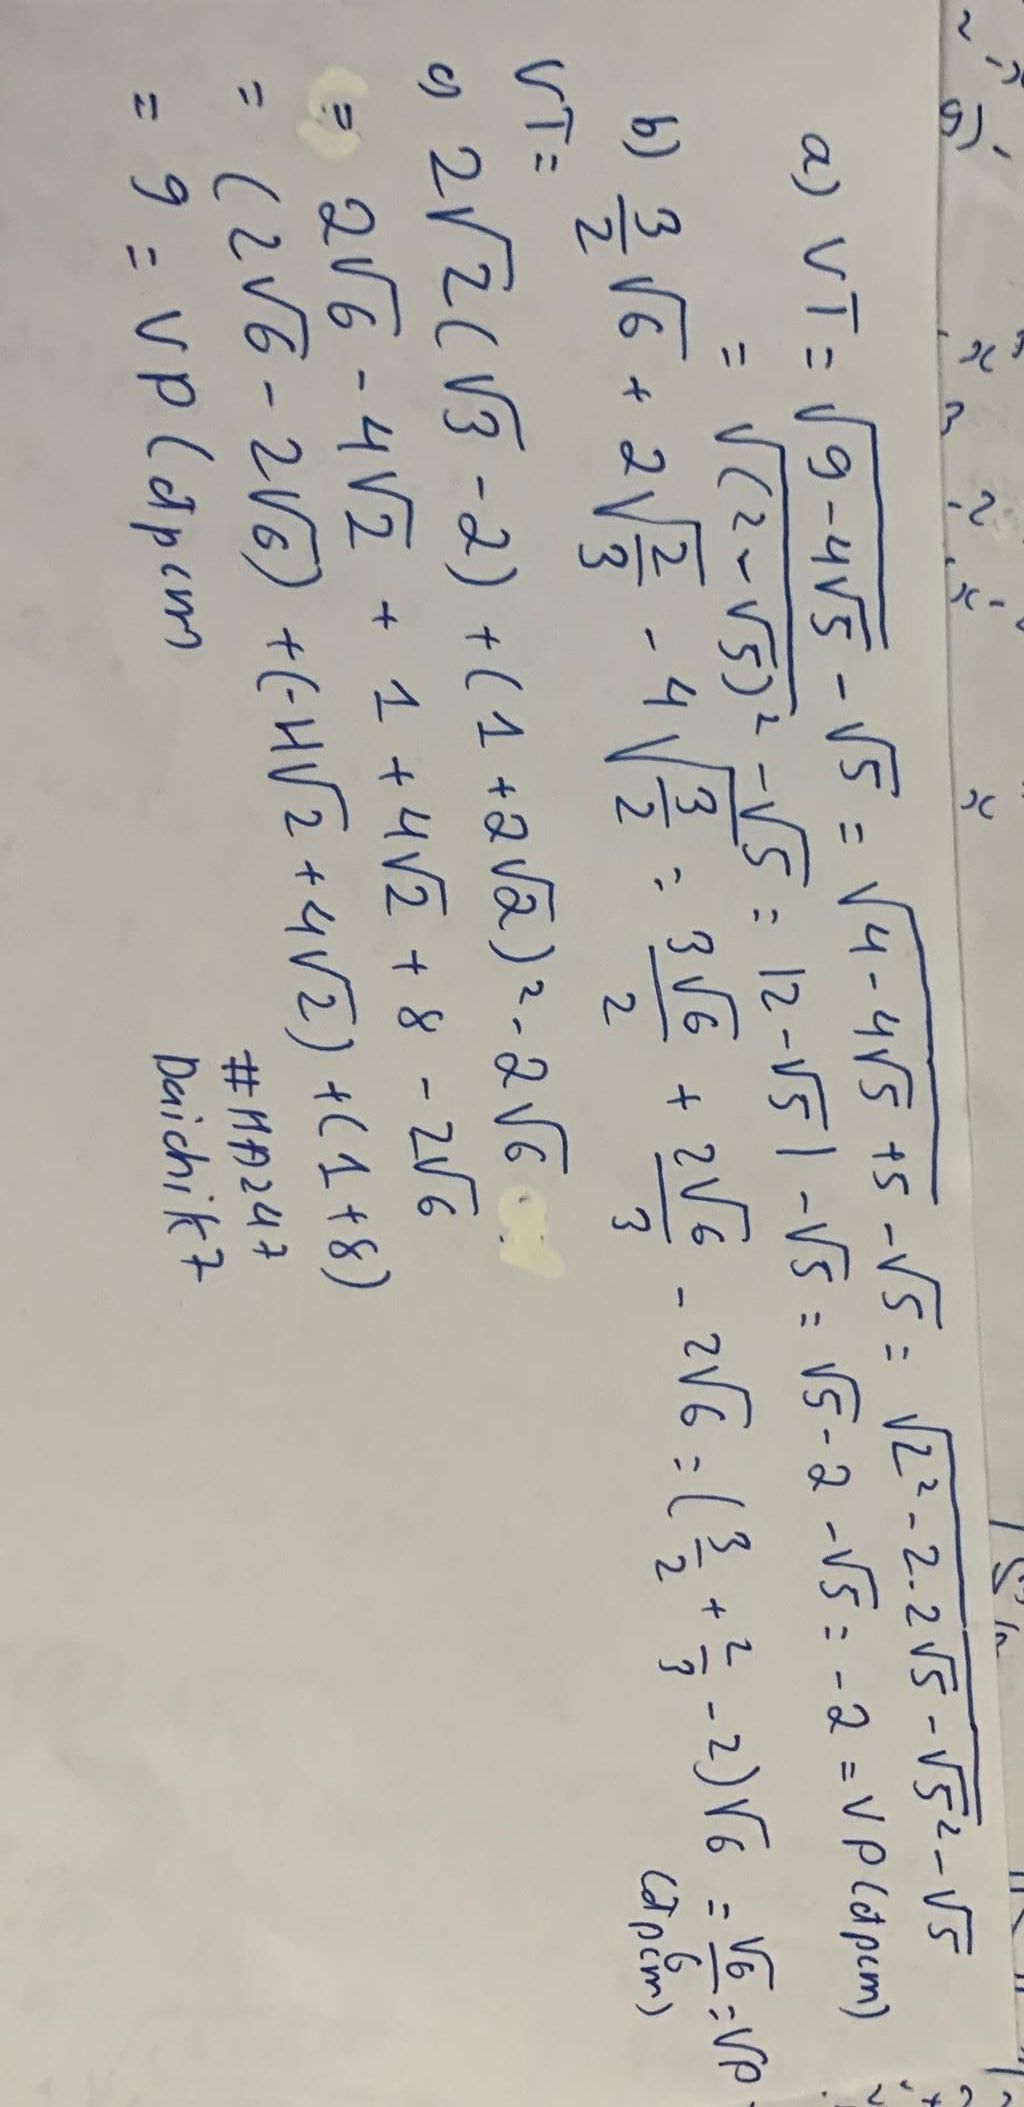 a) VT = √(9-4√5) - √5 = √(4-4√5+5) - √5 = √(2²-2.2√5-√5²) - √5
= √((2-√5)²) - √5 = |2-√5| - √5 = √5-2-√5 = -2 = VP (đpcm)
b) 3/2 √6 + 2√(2/3) - 4√(3/2) = 3√6/2 + 2√6/3 - 2√6 = (3/2 + 2/3 - 2)√6 = √6/6 = VP
(đpcm)
VT =
c) 2√2(√3-2) + (1+2√2)² - 2√6
= 2√6 - 4√2 + 1 + 4√2 + 8 - 2√6
= (2√6 - 2√6) + (-4√2 + 4√2) + (1+8)
= 9 = VP (đpcm
#MA247
Daichik7